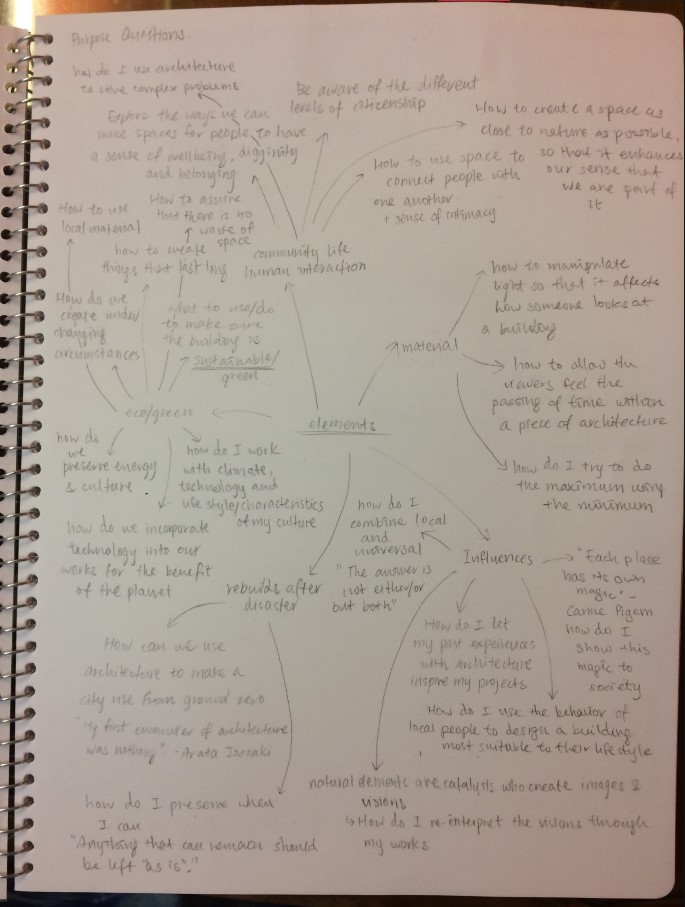 Purpose Questions.
how do I use architecture
to solve complex problems
Explore the ways we can
make spaces for people, to have
a sense of wellbeing, digginity
and belonging
Be aware of the different
levels of citizenship
How to create a space as
close to nature as possible,
so that it enhances
our sense that
we are part of
it
How to use space to
connect people with
one another
+ sense of intimacy
How to use
local material
How to assure
that there is no
waste of
space
how to create
things that last long
community life
human interaction
How do we
create under
changing
circumstances
what to use/do
to make sure
the building is
sustainable/
green
how to manipulate
light so that it affects
how someone looks at
a building
material
how to allow the
viewers feel the
passing of time within
a piece of architecture
eco/green
elements
how do
we
preserve energy
& culture
how do I work
with climate,
technology and
use style/characteristics
of my culture
how do I try to do
the maximum using
the minimum
how do we incorporate
technology into our
works for the benefit
of the planet
how do I
combine local
and
universal
"The answer is
not either/or
but both"
Influences
"Each place
has its own
magic" -
Carme Pigem
how do I
show this
magic to
society
rebuilds after
disaster
How can we use
architecture to make a
city rise from ground zero
"My first encounter of architecture
was nothing" - Arata Isozaki
How do I let
my past experiences
with architecture
inspire my projects
How do I use the behavior of
local people to design a building
most suitable to their lifestyle
natural elements are catalysts who create images &
visions
↳ How do I re-interpret the visions through
my works
how do I preserve when
I can
"Anything that can remain should
be left "as is"."